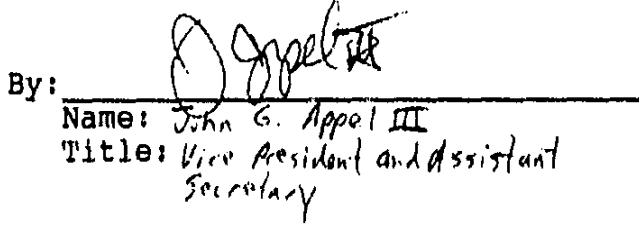 By: J Appel III
Name: John G. Appel III
Title: Vice President and Assistant
Secretary